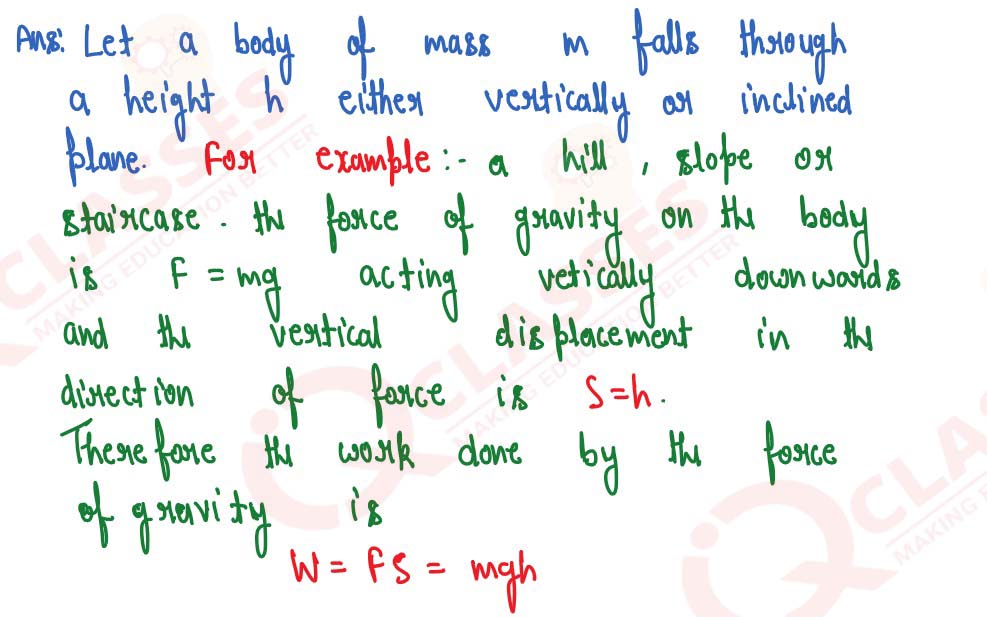 Ans: Let a body of mass m falls through
a height h either vertically or inclined
plane. For example :- a hill, slope or
staircase. the force of gravity on the body
is F = mg acting vetically downwards
and the vertical displacement in the
direction of force is S=h.
Therefore the work done by the force
of gravity is
W = FS = mgh
CLASSES
MAKING EDUCATION BETTER
QCLASSES
MAKING EDUCATION BETTER
QCLAS
MAKING